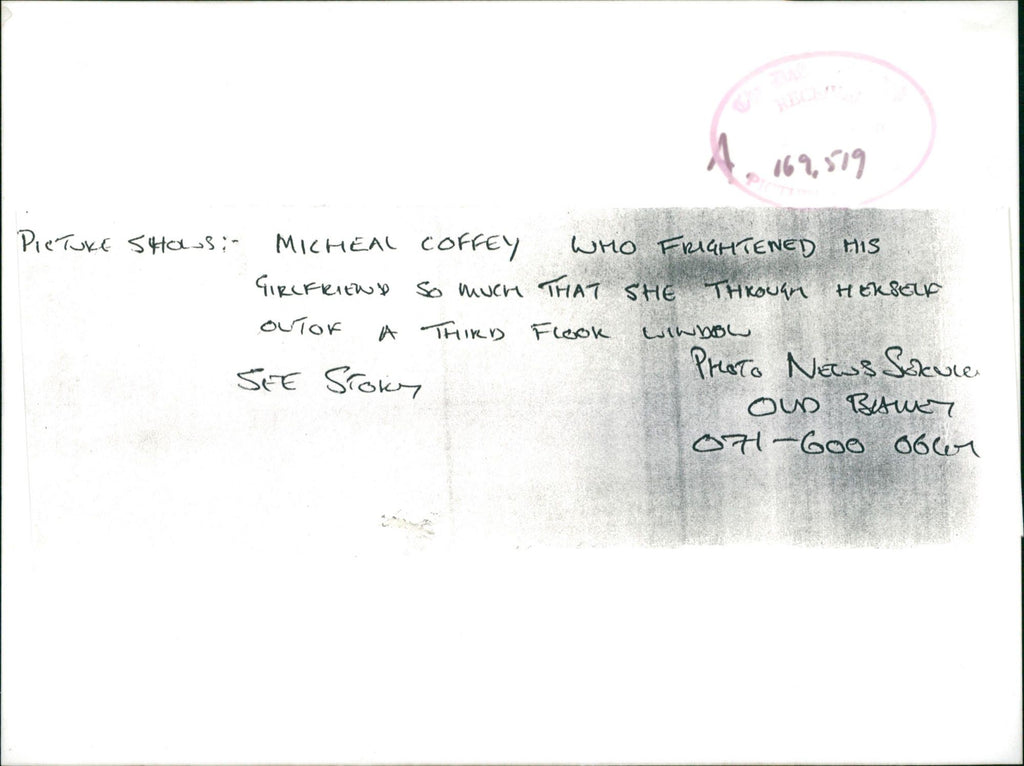 RECEIVED
A. 169,519
PICTURE
PICTURE SHOWS:- MICHEAL COFFEY WHO FRIGHTENED HIS
GIRLFRIEND SO MUCH THAT SHE THROUGH HERSELF
OUTOF A THIRD FLOOR WINDOW
SEE STORY
PHOTO NEWS SERVICE
OLD BAILEY
071-600